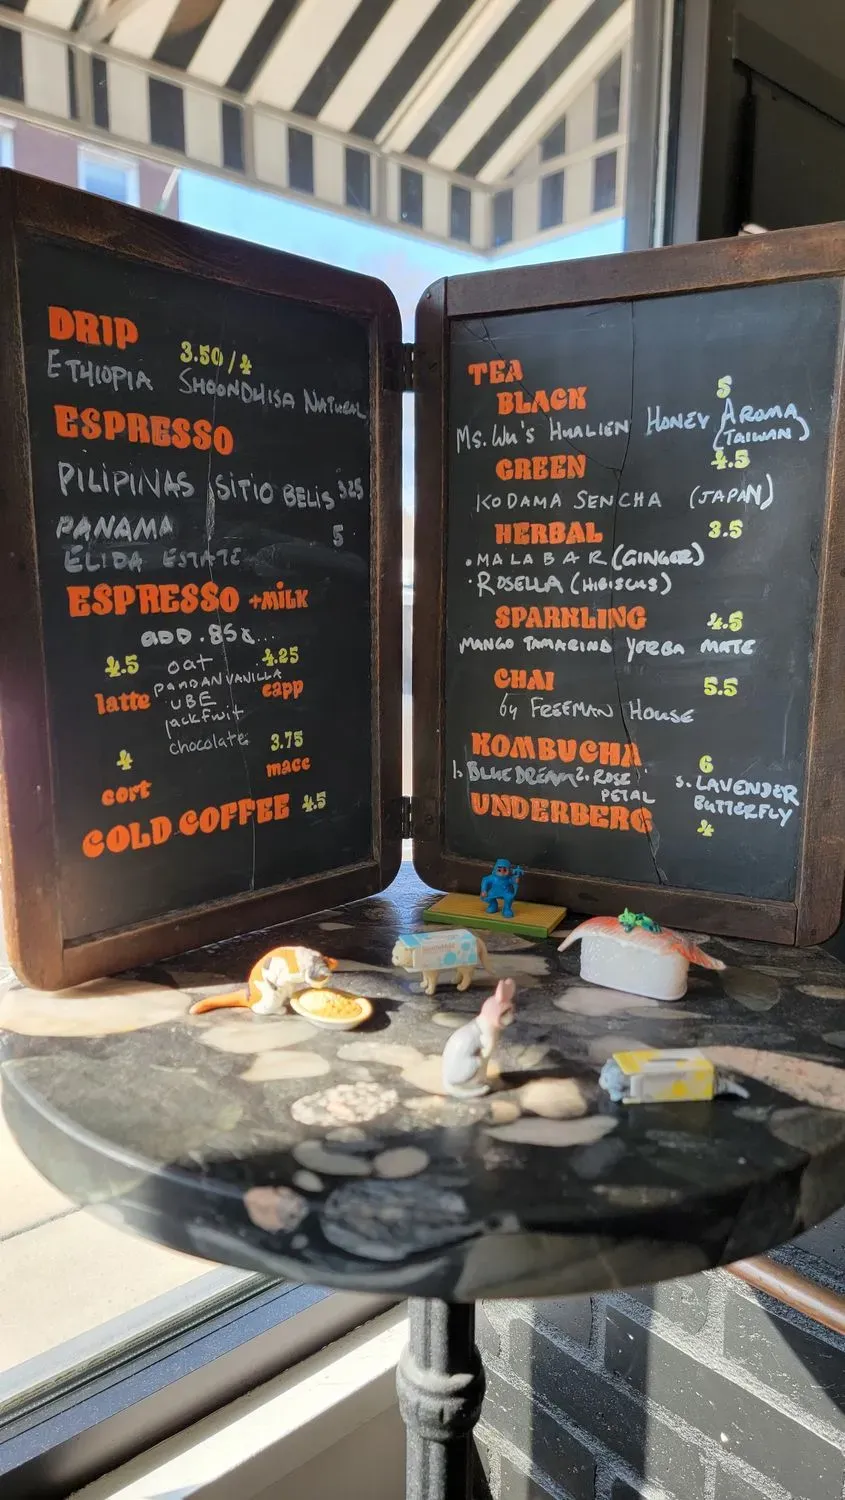 DRIP
3.50/4
ETHIOPIA SHOONDHISA NATURAL
ESPRESSO
PILIPINAS SITIO BELIS 3.25
PANAMA 5
ELIDA ESTATE
ESPRESSO +MILK
ADD .85¢...
4.5 oat 4.25
latte PANDAN VANILLA capp
UBE
jackfruit
chocolate 3.75
4 macc
cort
COLD COFFEE 4.5
TEA
BLACK 5
Ms. Wu's HUALIEN HONEY AROMA
(TAIWAN)
GREEN 4.5
KODAMA SENCHA (JAPAN)
HERBAL 3.5
• MALABAR (GINGER)
• ROSELLA (HIBISCUS)
SPARKLING 4.5
MANGO TAMARIND YERBA MATE
CHAI 5.5
by FREEMAN HOUSE
KOMBUCHA 6
1. BLUE DREAM 2. ROSE PETAL 3. LAVENDER BUTTERFLY
UNDERBERG 4